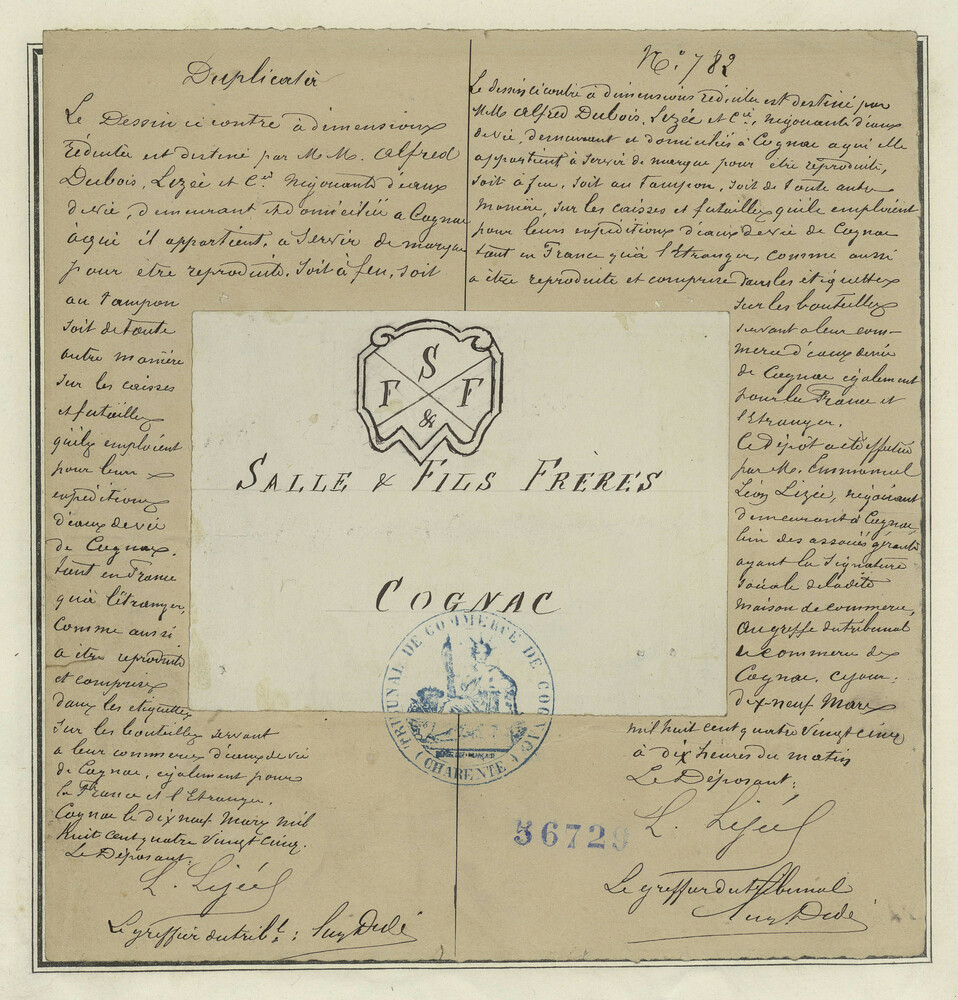 Duplicata
Le Dessin ci contre à dimensions
réduites est destiné par M.M. Alfred
Dubois, Lizée et Cie Négociants d'eaux
de vie, demeurant et domiciliés à Cognac
à qui il appartient, à servir de marque
pour être reproduite, soit à feu, soit
au tampon
soit de toute
autre manière
sur les caisses
et futailles
qu'ils emploient
pour leurs
expéditions
d'eaux de vie
de Cognac,
tant en France
qu'à l'étranger,
comme aussi
à être reproduite
et comprise
dans les étiquettes
sur les bouteilles servant
à leur commerce d'eaux de vie
de Cognac, également pour
la France et l'Etranger.
Cognac le dix neuf Mars mil
huit cent quatre vingt cinq.
Le Déposant:
L. Lizée
Le greffier du trib.l :
N.º 782
Le dessin ci contre à dimensions réduites est destiné par
M.M. Alfred Dubois, Lizée et Cie, négociants d'eaux
de vie, demeurant et domiciliés à Cognac à qui elle
appartient à servir de marque pour être reproduite,
soit à feu, soit au tampon, soit de toute autre
manière, sur les caisses et futailles qu'ils emploient
pour leurs expéditions d'eaux de vie de Cognac
tant en France qu'à l'étranger, comme aussi
à être reproduite et comprise dans les étiquettes
sur les bouteilles
servant à leur com-
merce d'eaux de vie
de Cognac également
pour la France et
l'Etranger.
Ce dépôt a été effectué
par M. Emmanuel
Léon Lizée, négociant
demeurant à Cognac,
l'un des associés gérants
ayant la signature
sociale de ladite
maison de commerce,
au greffe du tribunal
de commerce de
Cognac, ce jour:
dix-neuf Mars
mil huit cent quatre vingt cinq
à dix heures du matin
Le Déposant:
L. Lizée
Le greffier du tribunal
F S F
&
SALLE & FILS FRÈRES
COGNAC
TRIBUNAL DE COMMERCE DE COGNAC
(CHARENTE)
56729